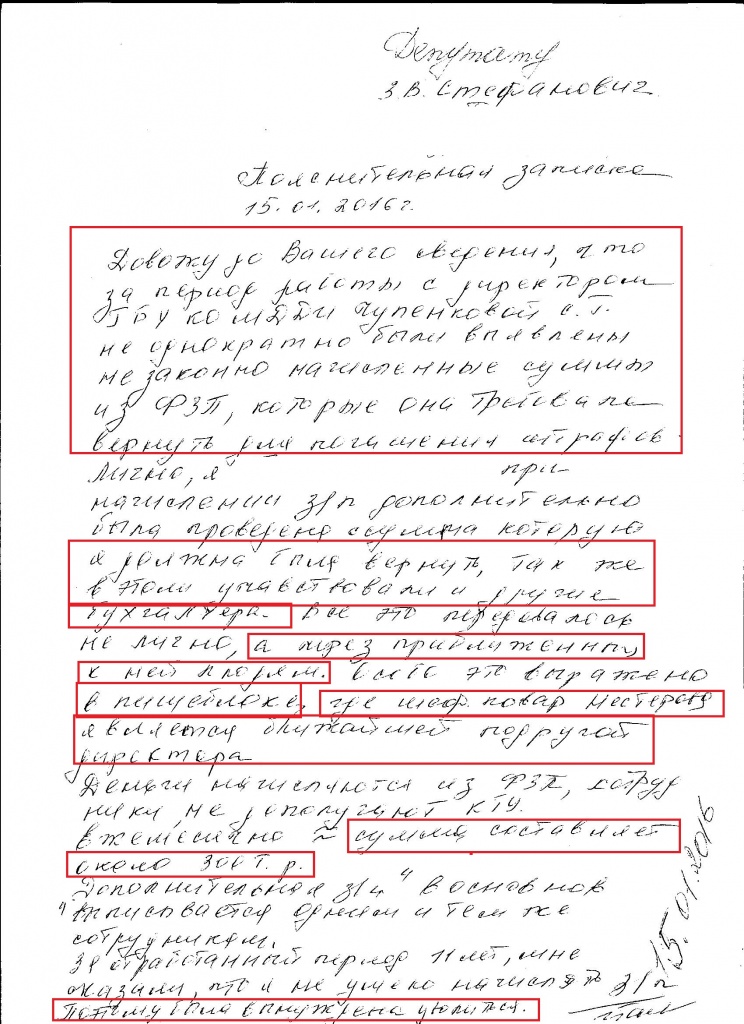 Депутату
З.В. Стефанович
Пояснительная записка
15.01.2016г.
Довожу до Вашего сведения, что
за период работы с директором
ГБУ КО МДДИ Чупенковой С.Г.
не однократно были выявлены
не законно начисленные суммы
из ФЗП, которые она требовала
вернуть для погашения штрафов
Лично, я при
начислении з/п дополнительно
была проведена сумма которую
я должна была вернуть, так же
в этом учавствовали и другие
бухгалтера. Все это передавалось
не лично, а через приближенных
к ней людям. Особо это выражено
в пищеблоке, где шеф повар Нестерова
является ближайшей подругой
директора
Деньги начисляются из ФЗП, сотруд
ники не дополучают КТУ.
Ежемесячно ≈ сумма составляет
около 300 т.р.
Дополнительная з/п" в основном
"выписывается одним и тем же
сотрудникам.
За отработанный период 11 лет, мне
сказали, что я не умею начислять з/п
Потому была вынуждена уволиться.
15.01.2016